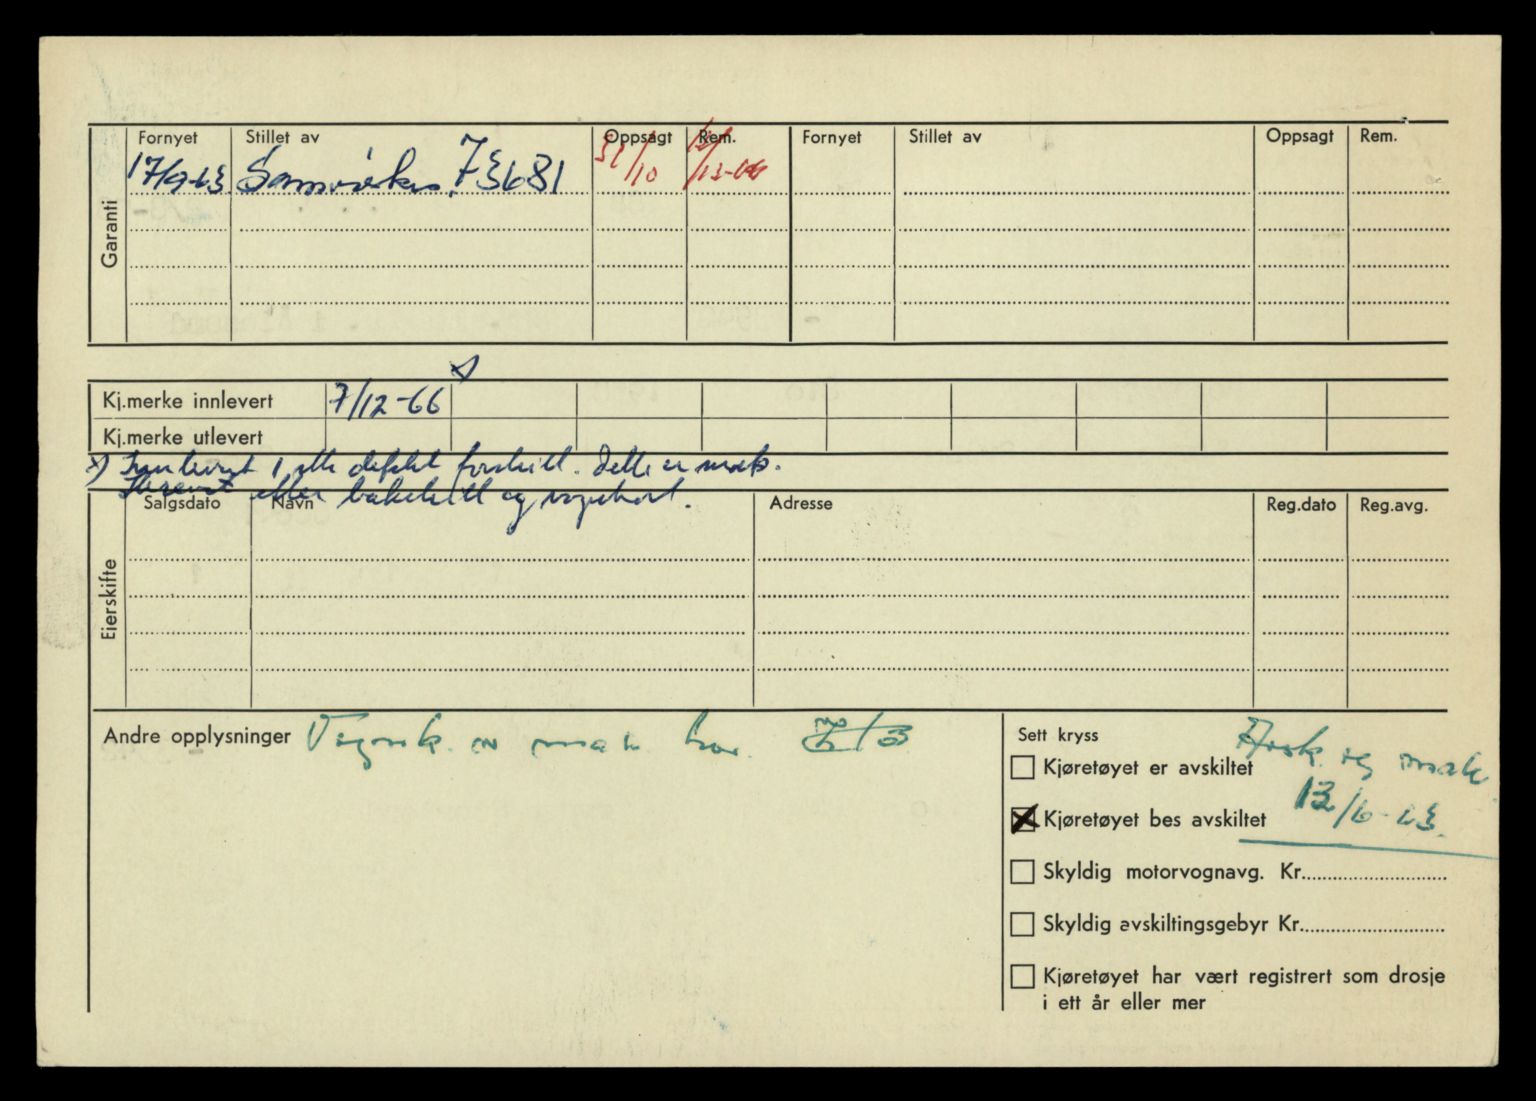 Fornyet Stillet av Oppsagt Rem. Fornyet Stillet av Oppsagt Rem.
17/9-63 Samvirke 73681 31/10 /12-66
Garanti
Kj.merke innlevert 7/12-66 x)
Kj.merke utlevert
x) Innlevert 1 stk defekt forskilt. Dette er mak.
etter bakskilt og vognkort.
Salgsdato Navn Adresse Reg.dato Reg.avg.
Eierskifte
Andre opplysninger Vognk. er mak.
Sett kryss
Avsk. og mak.
Kjøretøyet er avskiltet
13/6-63.
Kjøretøyet bes avskiltet
Skyldig motorvognavg. Kr.
Skyldig avskiltingsgebyr Kr.
Kjøretøyet har vært registrert som drosje
i ett år eller mer